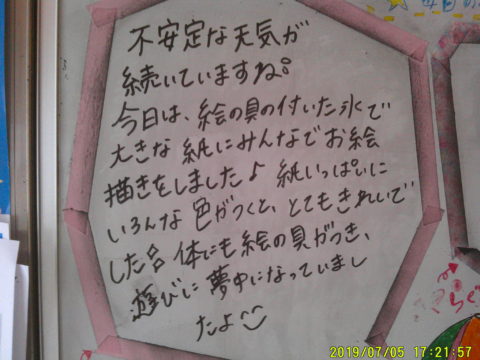 不安定な天気が
続いていますね。
今日は、絵の具の付いた氷で
大きな紙にみんなでお絵
描きをしました♪ 紙いっぱいに
いろんな色がつくと、とてもきれいで
した 体にも絵の具がつき、
遊びに夢中になっていまし
たよ
毎日
2019/07/05 17:21:57